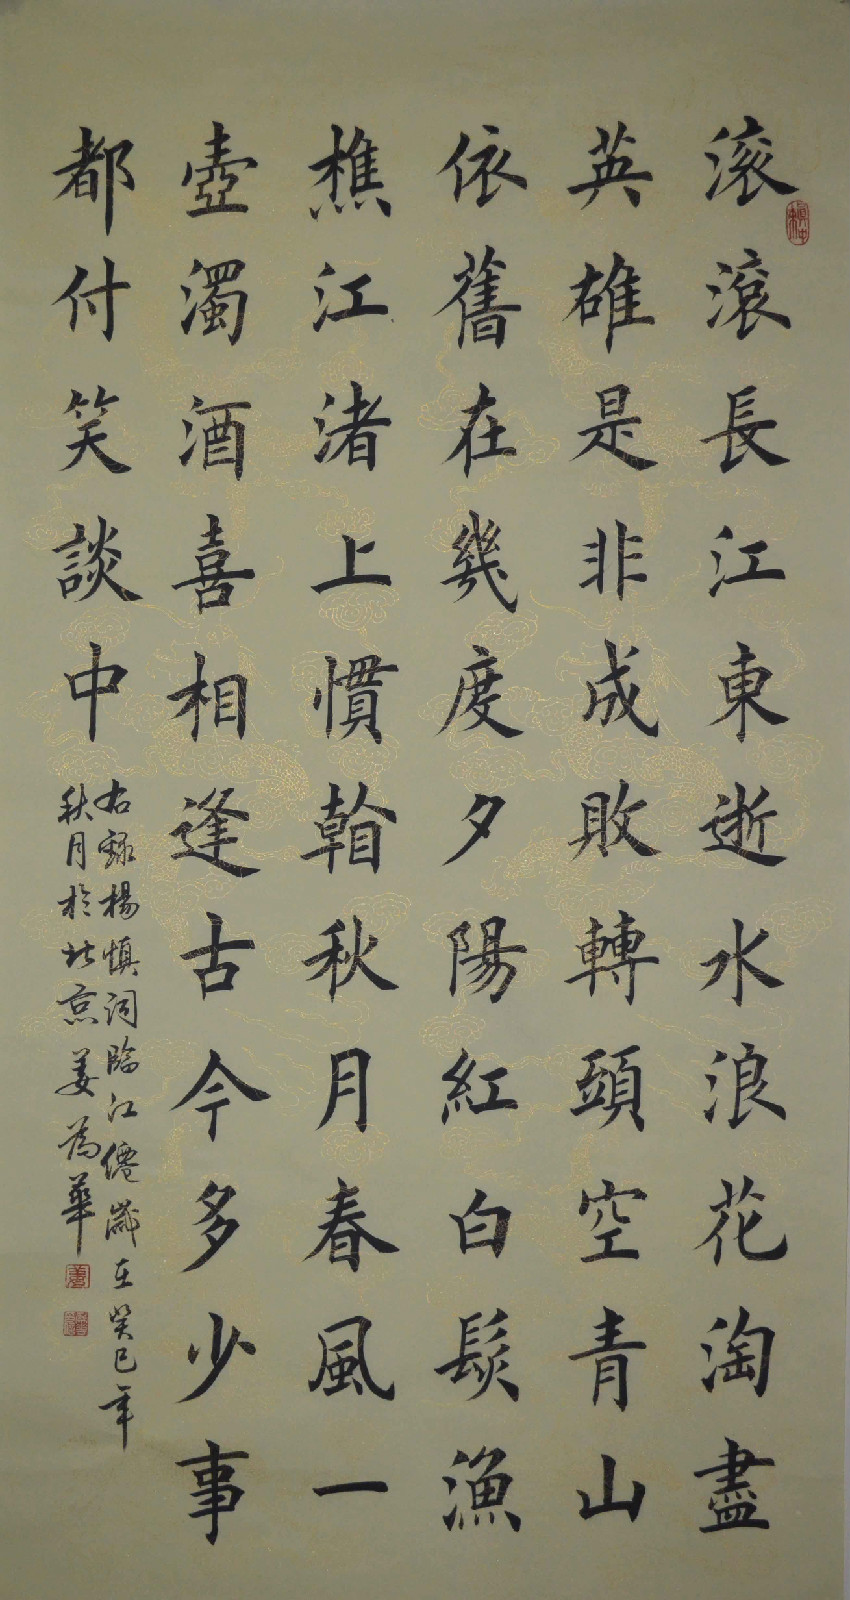 滚滾長江東逝水浪花淘盡
英雄是非成敗轉頭空青山
依舊在幾度夕陽紅白髮漁
樵江渚上慣看秋月春風一
壺濁酒喜相逢古今多少事
都付笑談中
右錄楊慎詞臨江僊歲在癸巳年
秋月於北京姜為華